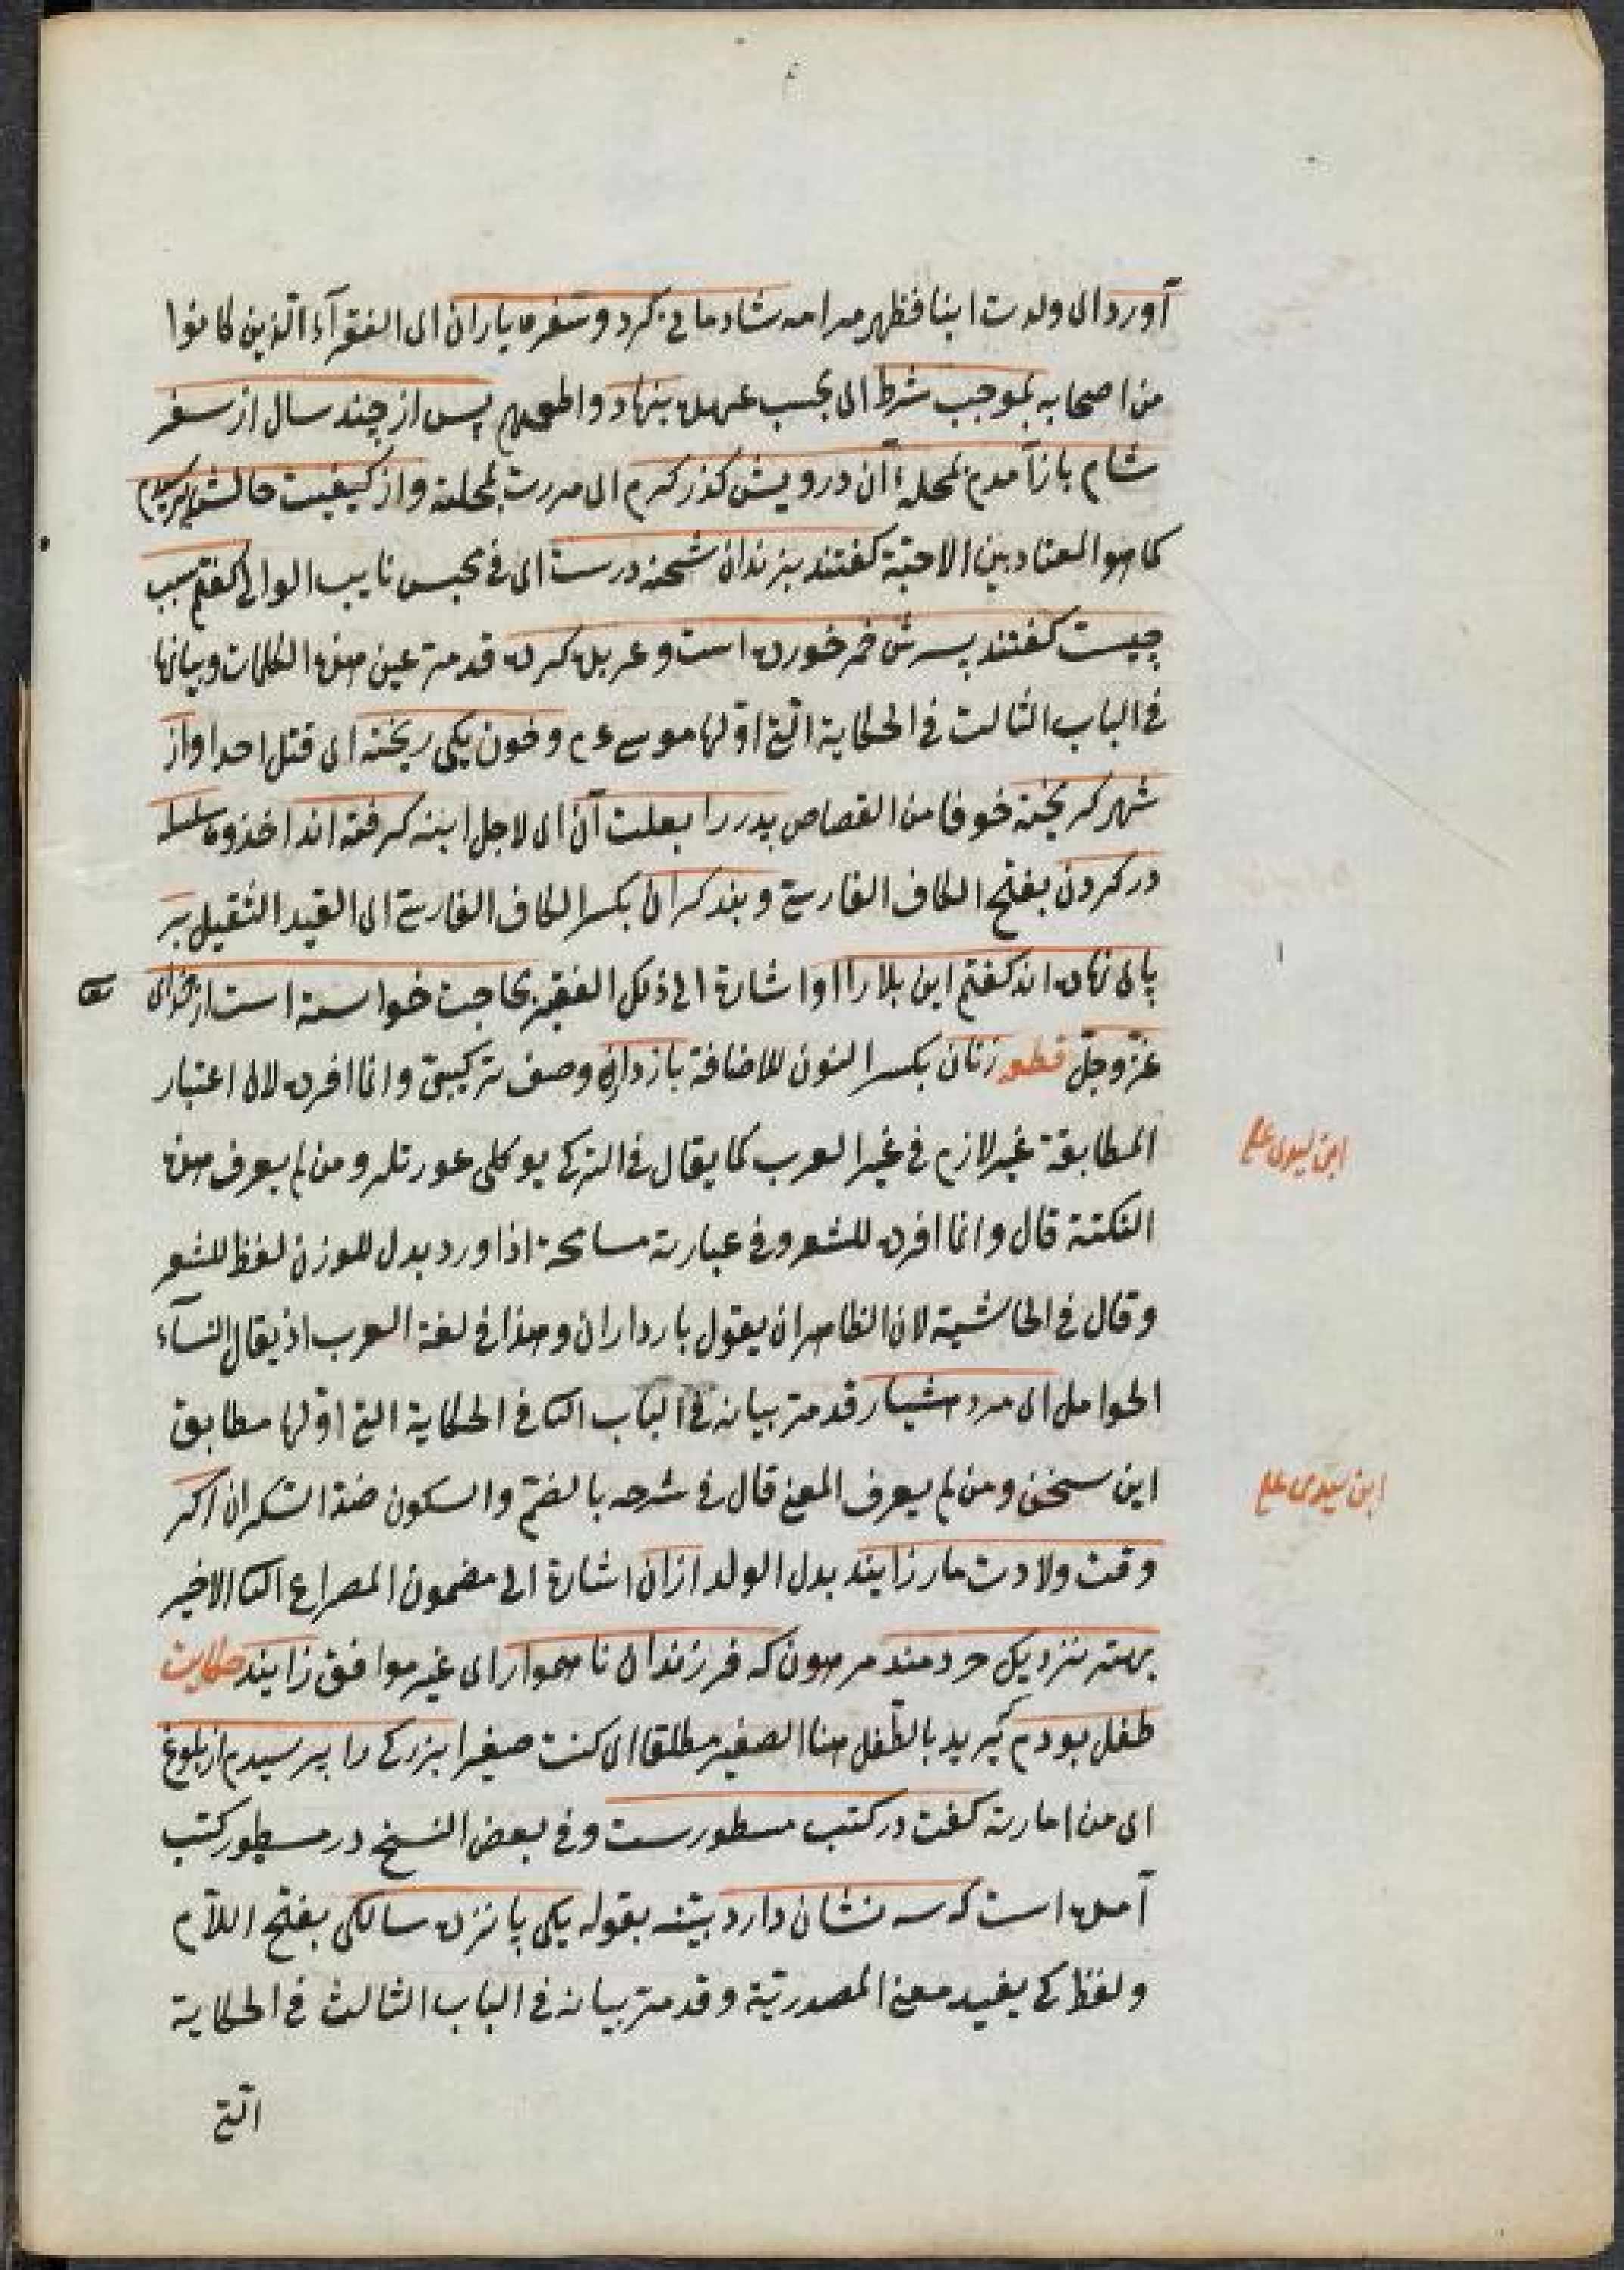 آورد ای ولدت ابنا فظهر مرامه شادمانی کرد وسفره یاران ای الفقرآء الذین کانوا
من اصحابه بموجب شرط ای بحسب عهده بنهاد واطعمهم پس از چند سال از سفر
شام باز آمدم بمحلهٔ آن درویش کذر کردم ای مررت بمحلته واز کیفیت حالش پرسیدم
کما هو المعتاد بین الاحبّة کفتند بزندان شحنه درست ای فی محبس نایب الوالی کفتم سبب
چیست کفتند پسرش خمر خورده است وعربده کرده قد مرّ عین هذه الکلمات وبیانها
فی الباب الثالث فی الحکایة الّتی اوّلها موسی ع م وخون یکی ریخته ای قتل احدا واز
شهر کریخته خوفا من القصاص پدر را بعلت آن ای لاجل ابنه کرفته اند اخذوه سلسله
در کردن بفتح الکاف الفارسیّة وبند کران بکسر الکاف الفارسیّة ای القید الثقیل بر
پای نهاده اند کفتم این بلا را او اشارة الی ذلک الفقیر بحاجت خواسته است از خدای
عزّ وجلّ قطعه زنان بکسر النون للاضافة باردار وصف ترکیبیّ وانما افرده لان اعتبار
المطابقة غیر لازم فی غیر العرب کما یقال فی الترکی یوکلی عورتلر ومن لم یعرف هذه
النکتة قال وانما افرده للشعر وفی عبارته مسامحة اذا ورد بدل للوزن لفظ للشعر
وقال فی الحاشیة لان الظاهر ان یقول بارداران وهذا فی لغة العرب اذ یقال النسآء
الحوامل ای مرد هشیار قد مرّ بیانه فی الباب الثا فی الحکایة التی اوّلها مطابق
این سخن ومن لم یعرف المعنی قال فی شرحه بالضمّ والسکون ضدّ السّکران اکر
وقت ولادت مار زایند بدل الولد ازان اشارة الی مضمون المصراع الثا الاخیر
بهتر نزدیک خردمند مرهون که فرزندان ناهموار ای غیر موافق زایند حکایت
طفل بودم یرید بالطّفل هنا الصغیر مطلقا ای کنت صغیرا بزرکی را پرسیدم از بلوغ
ای من امارته کفت در کتب مسطورست وفی بعض النسخ در مسطور کتب
آمده است که سه نشان دارد بیّنه بقوله یکی پانزده سالکی بفتح اللآم
ولفظ کی یفید معنی المصدریّة وقد مرّ بیانه فی الباب الثالث فی الحکایة
الّتی
ابن سیدی علی
ابن سیدی علی